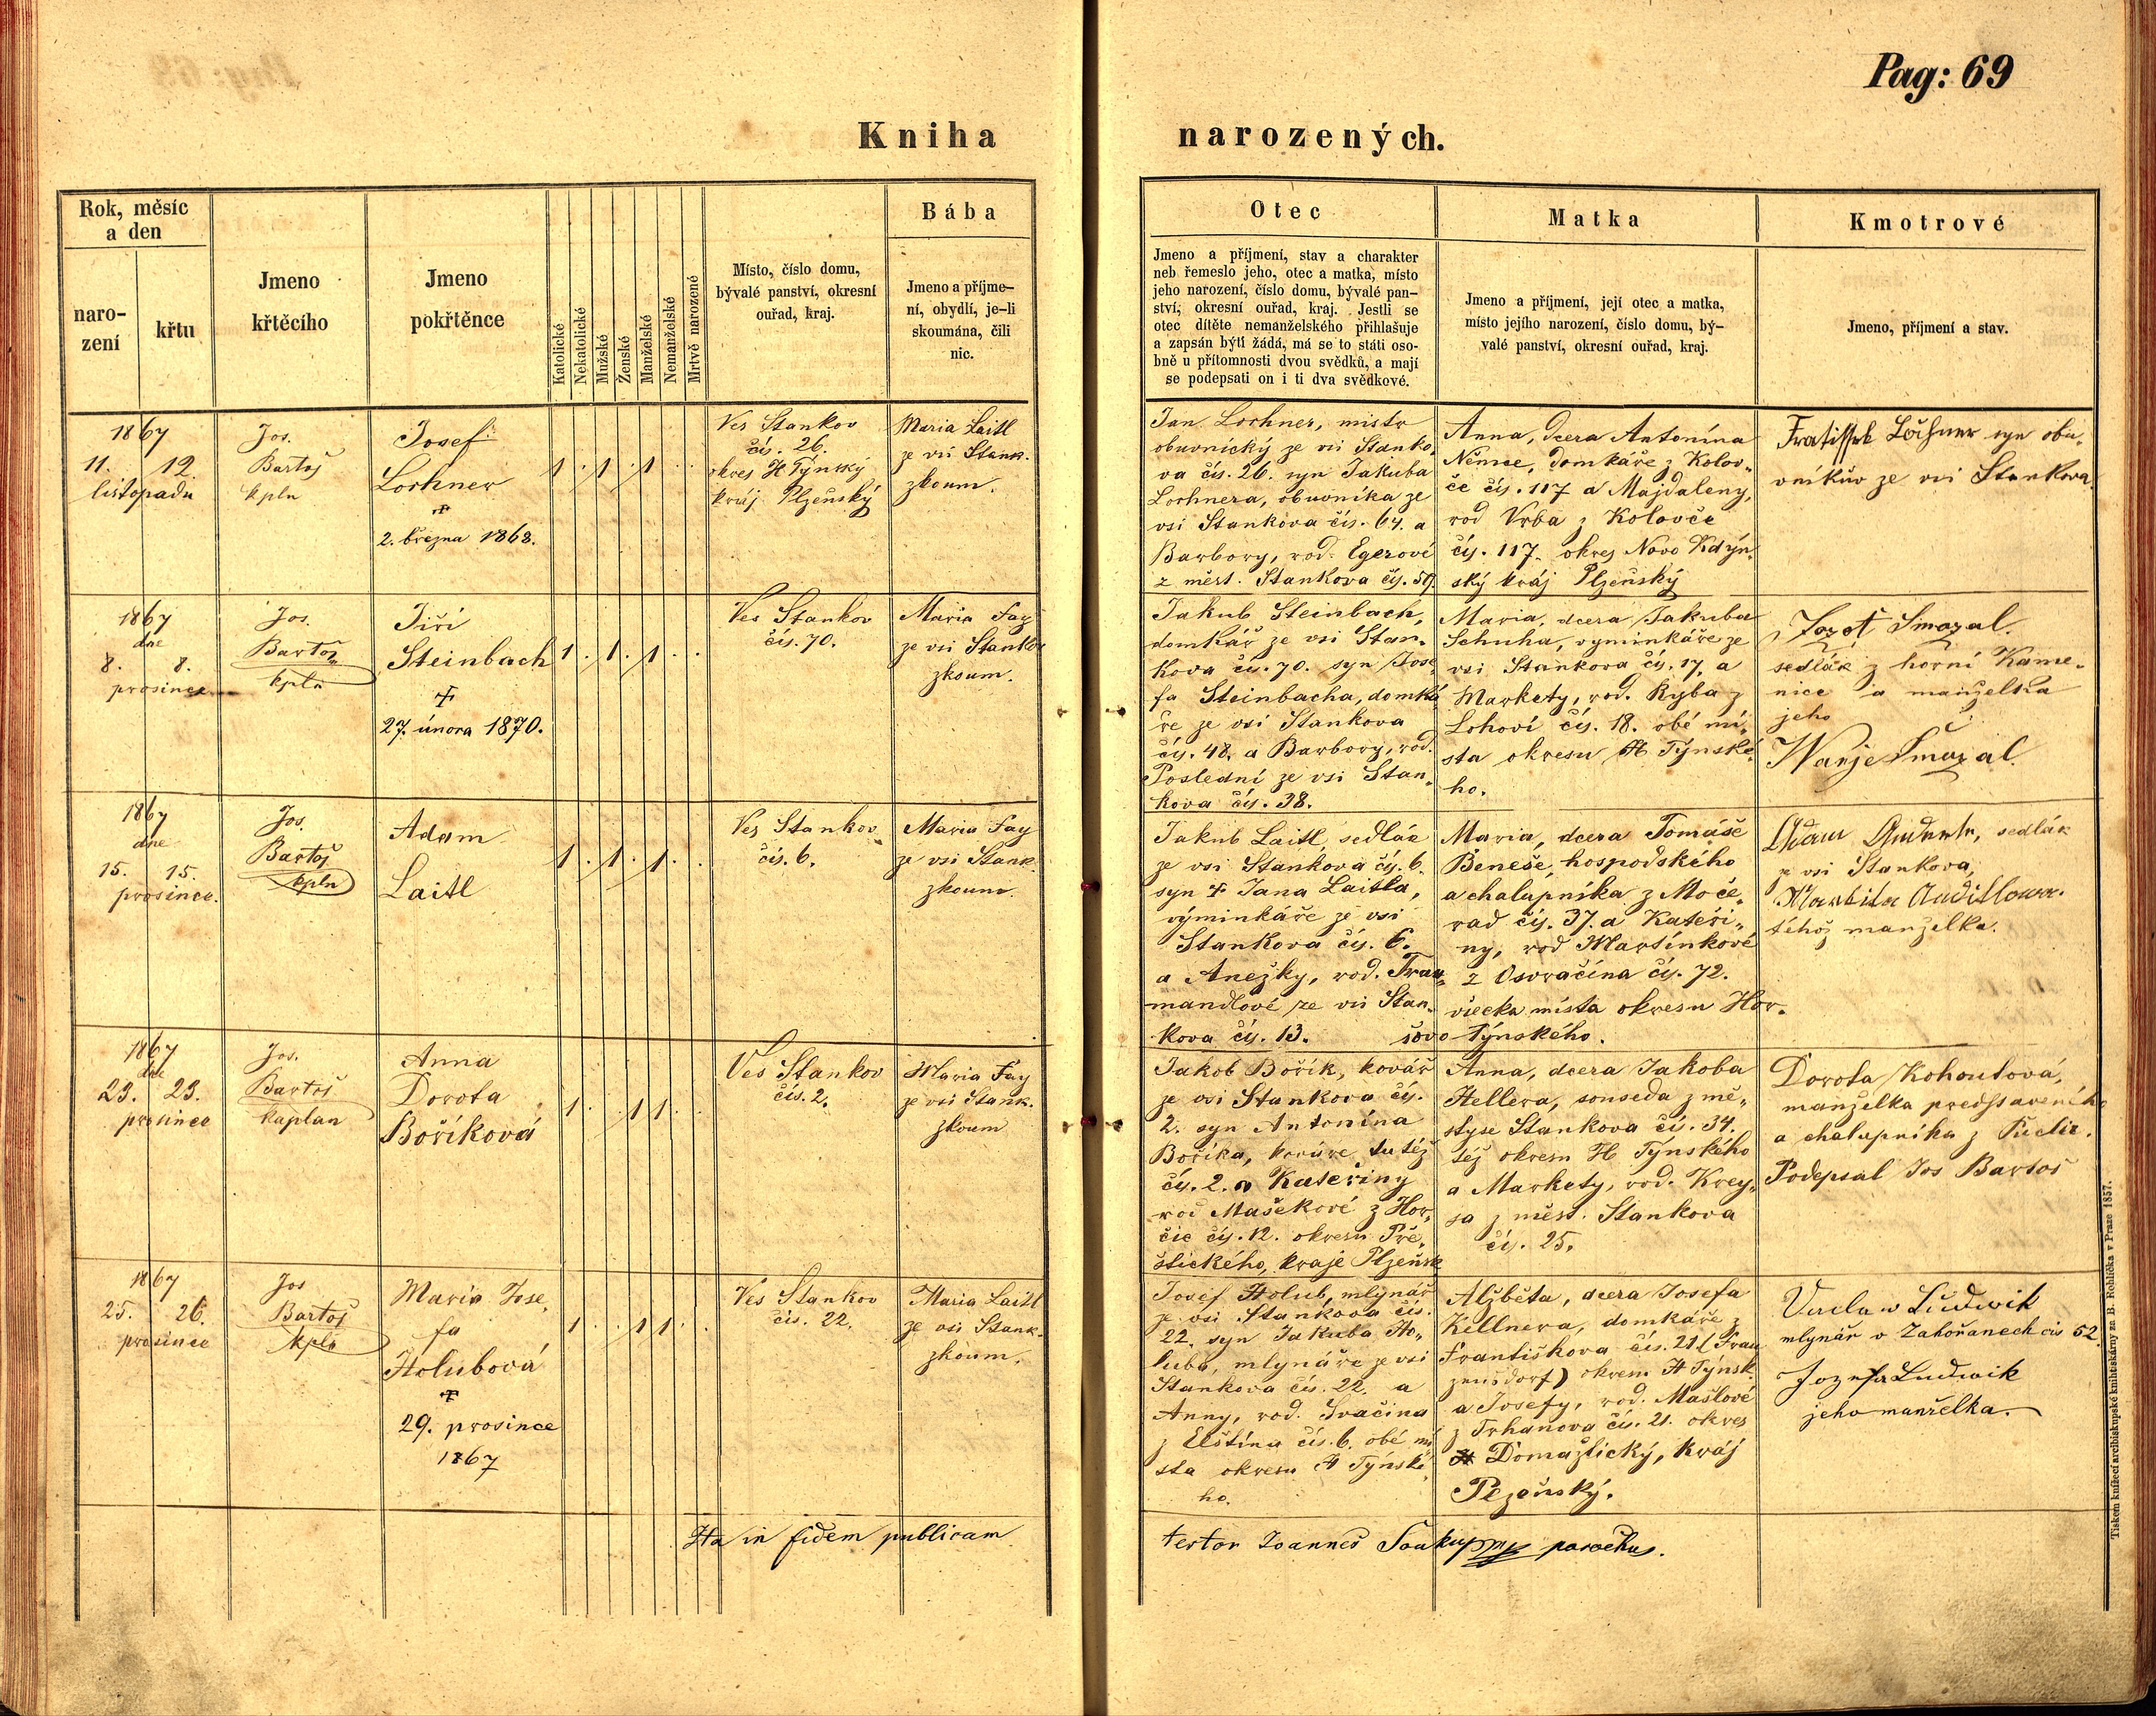 Pag: 69
Kniha narozených.
Rok, měsíc
a den
naro-
zení
křtu
Jmeno
křtěcího
Jmeno
pokřtěnce
Katolické
Nekatolické
Mužské
Ženské
Manželské
Nemanželské
Mrtvě narozené
Místo, číslo domu,
bývalé panství, okresní
ouřad, kraj.
Bába
Jmeno a příjme-
ní, obydlí, je-li
skoumána, čili
nic.
Otec
Jmeno a příjmení, stav a charakter
neb řemeslo jeho, otec a matka, místo
jeho narození, číslo domu, bývalé pan-
ství, okresní ouřad, kraj. Jestli se
otec dítěte nemanželského přihlašuje
a zapsán býti žádá, má se to státi oso-
bně u přítomnosti dvou svědků, a mají
se podepsati on i ti dva svědkové.
Matka
Jmeno a příjmení, její otec a matka,
místo jejího narození, číslo domu, bý-
valé panství, okresní ouřad, kraj.
Kmotrové
Jmeno, příjmení a stav.
1867
11. 12
listopadu
Jos.
Bartoš
kpln
Josef
Lochner
+
2. března 1868.
1 . 1 . 1 . .
Ves Stankov
čís. 26.
okres H Týnský
kráj Plzeňský
Maria Laitl
ze vsi Stank.
zkoum.
Jan Lochner, mistr
obuvnický ze vsi Stanko-
va čís. 26. syn Jakuba
Lochnera, obuvníka ze
vsi Stankova čís. 64. a
Barbory, rod. Egerové
z měst. Stankova čís. 59.
Anna, dcera Antonína
Němce, domkáře z Kolov-
če čís. 117 a Majdaleny,
rod Vrba z Kolovče
čís. 117. okres Novo Kdýn-
ský kráj Plzeňský
Lochner syn obu-
vníkův ze vsi Stankova.
1867
dne
8. 8.
prosince
Jos.
Bartoš
kpln
Jiří
Steinbach
+
27. února 1870.
1 . 1 . 1 . .
Ves Stankov
čís. 70.
Maria Fay
ze vsi Stankov
zkoum.
Jakub Steinbach,
domkář ze vsi Stan-
kova čís. 70. syn Jose-
fa Steinbacha, domká
ře ze vsi Stankova
čís. 48. a Barbory, rod.
Poslední ze vsi Stan-
kova čís. 38.
Maria, dcera Jakuba
Schuha, vyminkáře ze
vsi Stankova čís. 17. a
Markety, rod. Ryba z
Lohoví čís. 18. obě mí-
sta okresu H Týnské-
ho.
Smazal.
sedlák z horní Kame-
nice a manželka
jeho
1867
dne
15. 15.
prosince.
Jos.
Bartoš
kpln
Adam
Laitl
1 . 1 . 1 . .
Ves Stankov
čís. 6.
Maria Fay
ze vsi Stank.
zkoum.
Jakub Laitl, sedlák
ze vsi Stankova čís. 6.
syn + Jana Laitla,
výminkáře ze vsi
Stankova čís. 6.
a Anežky, rod. Trau-
mandlové ze vsi Stan-
kova čís. 13.
Maria, dcera Tomáše
Beneše, hospodského
a chalupníka z Moče-
rad čís. 37. a Kateři-
ny, rod Martínkové
z Osvračína čís. 72.
všecka místa okresu Hor-
šovo Týnského.
Adam sedlák
ze vsi Stankova,
téhož manželka.
1867
dne
23. 23.
prosince
Jos.
Bartoš
kaplan
Anna
Dorota
Boříková
1 . . 1 1 . .
Ves Stankov
čís. 2.
Maria Fay
ze vsi Stank.
zkoum
Jakob Bořík, kovář
ze vsi Stankova čís.
2. syn Antonína
Boříka, kováře tutéž
čís. 2. a Kateřiny
rod Mašekové z Hor-
čic čís. 12. okresu Pře-
štického, kraje Plzeňsk
Anna, dcera Jakoba
Hellera, souseda z mě-
styse Stankova čí. 34.
též okresu H Týnského
a Markety, rod. Krey-
sa z měst. Stankova
čís. 25.
Dorota Kohoutová,
manželka představeného
a chalupníka z Puclic.
Podepsal Jos Bartoš
1867
25. 26.
prosince
Jos
Bartoš
kpln
Maria Jose-
fa
Holubová
+
29. prosince
1867
1 . . 1 1 . .
Ves Stankov
čís. 22.
Maria Laitl
ze vsi Stank.
zkoum.
Josef Holub, mlynář
ze vsi Stankova čís.
22. syn Jakuba Ho-
luba, mlynáře ze vsi
Stankova čís. 22. a
Anny, rod. Svačina
z Elštína čís. 6. obě mí
sta okresu H Týnské-
ho.
Alžběta, dcera Josefa
Kellnera, domkáře z
Františkova čís. 21 (Fran
zensdorf) okresu H Týnsk.
a Josefy, rod. Mašlové
z Trhanova čís. 21. okres
Domažlický, kráj
Plzeňský.
Vaclaw Ludwik
mlynář v Zahořanech čís 52
Jozefa Ludwik
jeho manželka.
Ita in fidem publicam testor Joannes Soukup parochus.
Tiskem knížecí arcibiskupské knihtiskárny za B. Rohlíčka v Praze 1857.